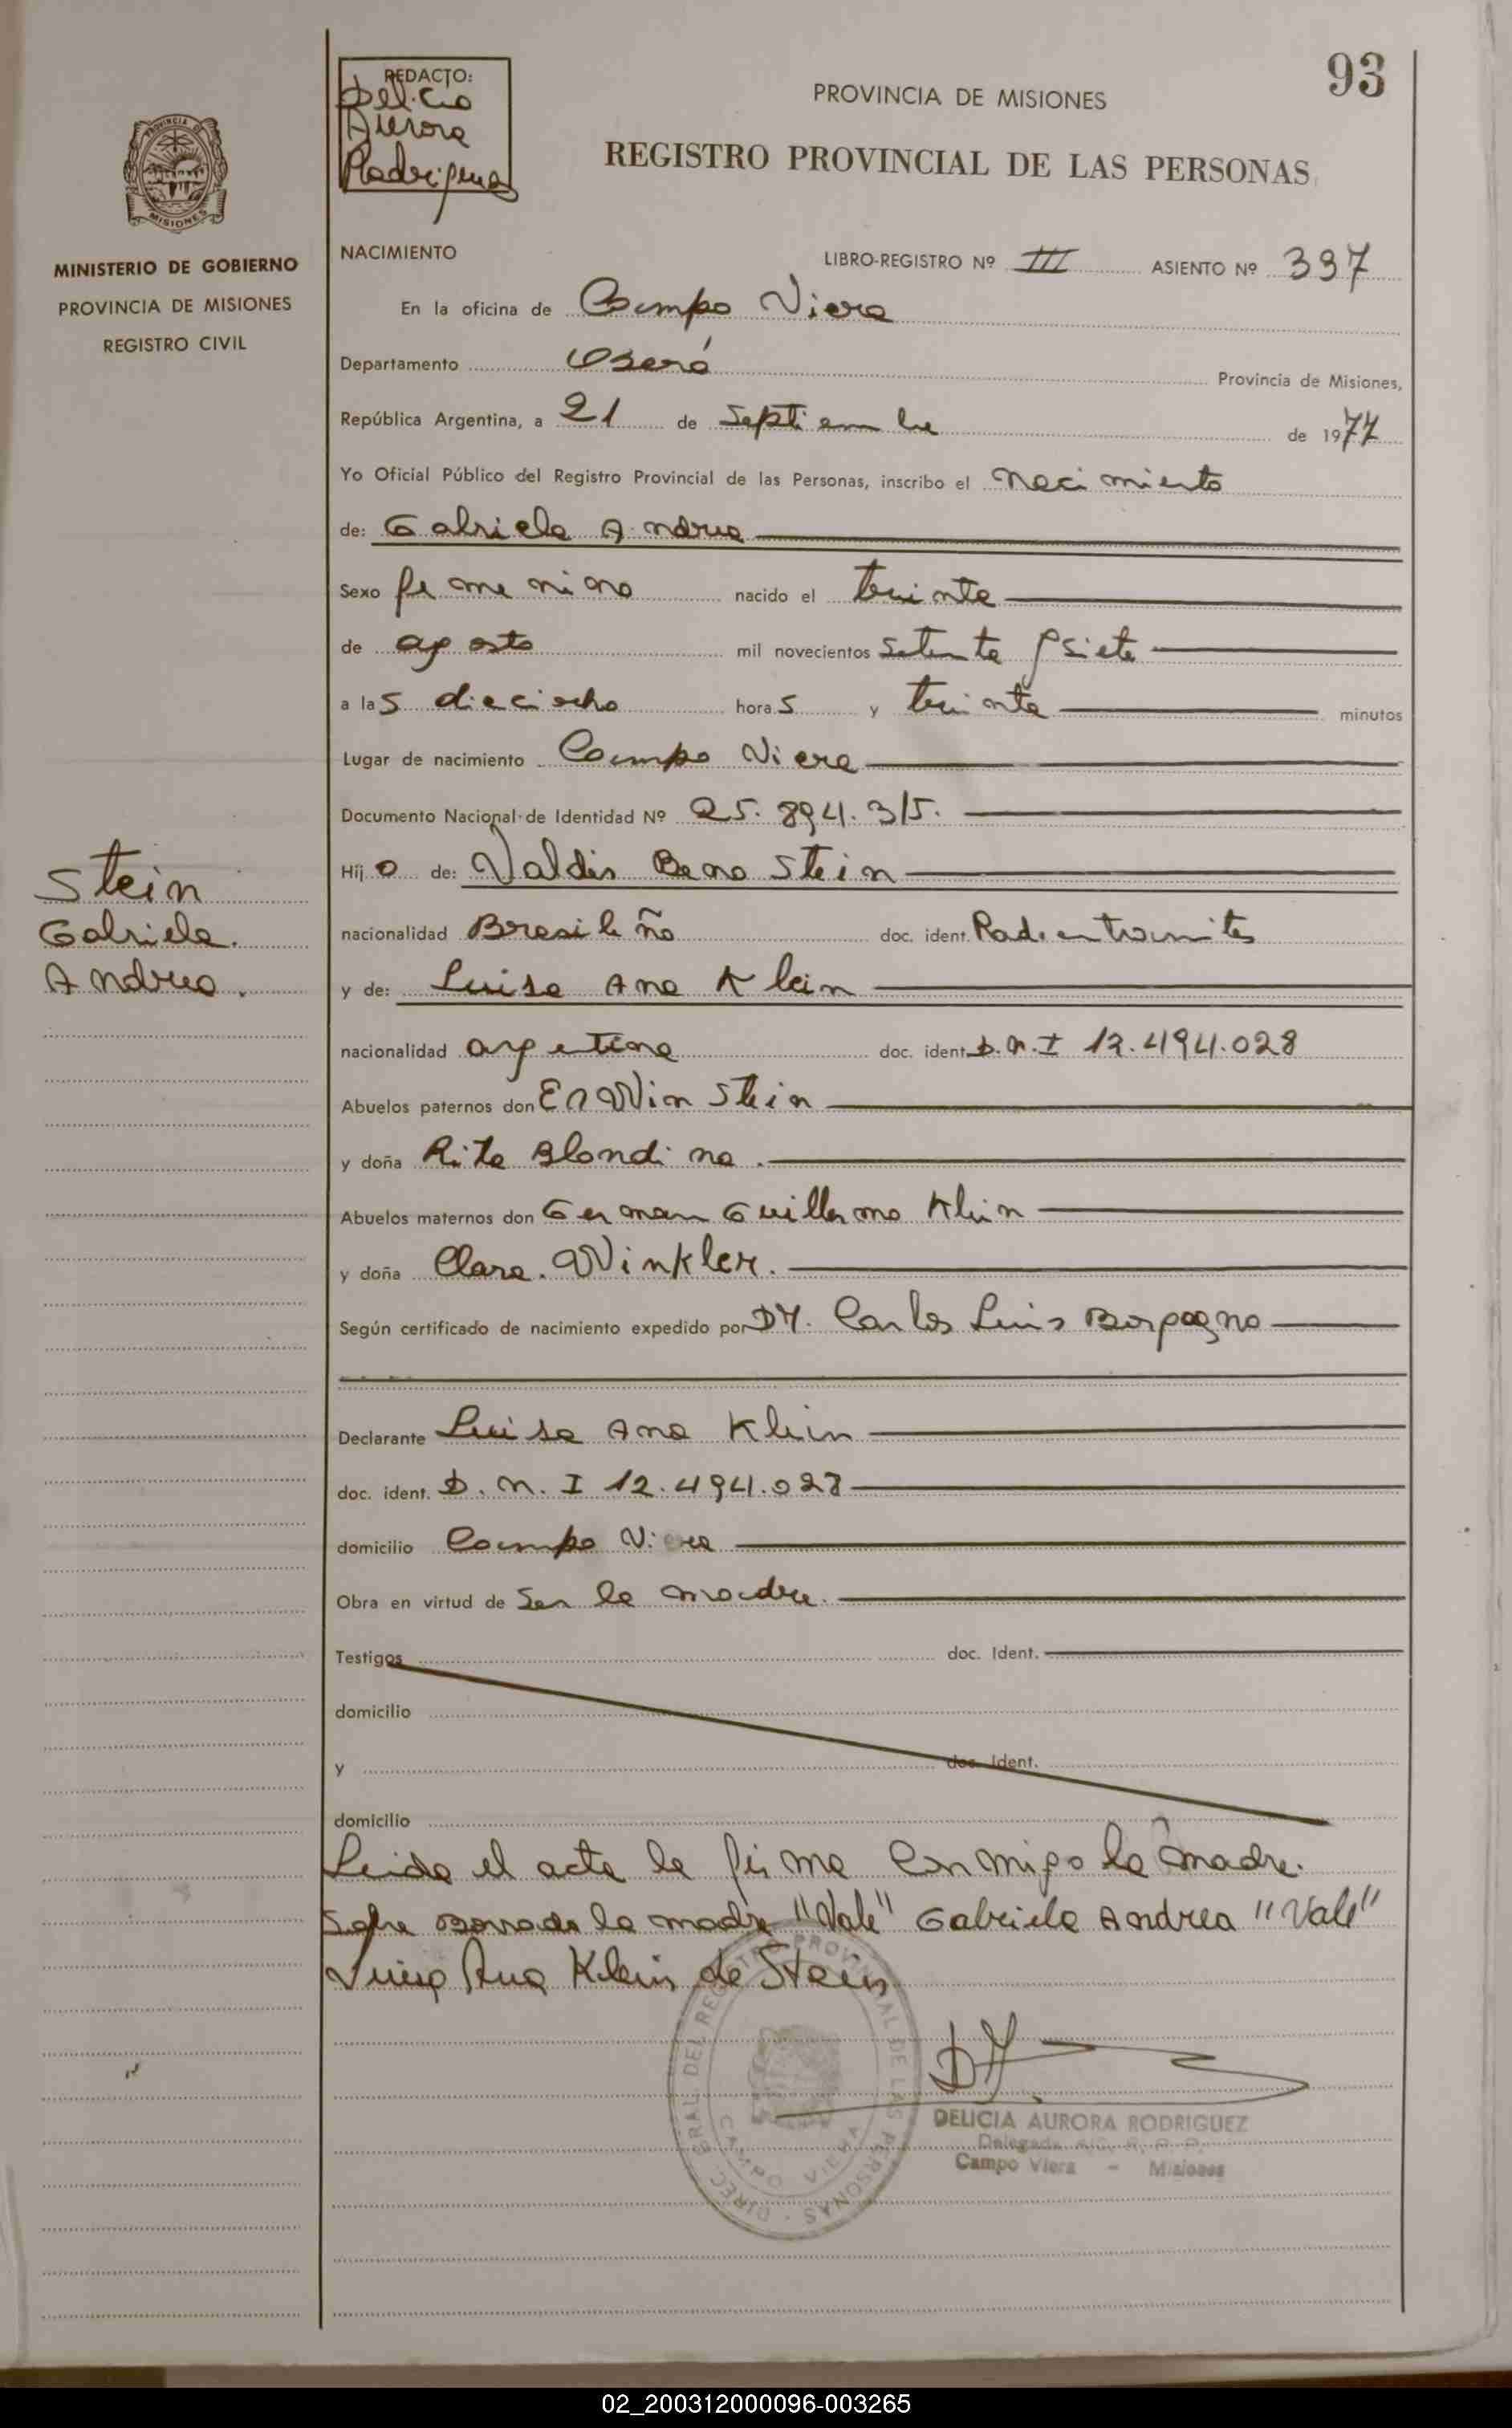 93
REDACTO:
Delicia
Aurora
Rodriguez
PROVINCIA DE MISIONES
REGISTRO PROVINCIAL DE LAS PERSONAS
PROVINCIA DE
MISIONES
MINISTERIO DE GOBIERNO
PROVINCIA DE MISIONES
REGISTRO CIVIL
NACIMIENTO LIBRO-REGISTRO Nº III ASIENTO Nº 397
En la oficina de Campo Viera
Departamento Oberá Provincia de Misiones,
República Argentina, a 21 de Septiembre de 1977
Yo Oficial Público del Registro Provincial de las Personas, inscribo el Nacimiento
de: Gabriela Andrea
Sexo femenino nacido el treinta
de agosto mil novecientos setenta y siete
a las dieciocho horas y treinta minutos
Lugar de nacimiento Campo Viera
Documento Nacional de Identidad Nº 25.894.315.
Stein
Gabriela.
Andrea.
Hijo de: Valdis Beno Stein
nacionalidad Brasileño doc. ident. Rad. en tramites
y de: Luisa Ana Klein
nacionalidad argetina doc. ident. D.N.I 12.494.028
Abuelos paternos don Erwin Stein
y doña Rita Blondina.
Abuelos maternos don German Guillermo Klein
y doña Clara. Winkler.
Según certificado de nacimiento expedido por Dr. Carlos Luis Borgogno
Declarante Luisa Ana Klein
doc. ident. D.N.I 12.494.028
domicilio Campo Viera
Obra en virtud de Ser la madre.
Testigos doc. Ident.
domicilio
y doc. Ident.
domicilio
Leida el acta la firma conmigo la madre.
Sobre Borrado la madre "Vale" Gabriela Andrea "Vale"
Luisa Ana Klein de Stein
DIREC. GRAL DEL REGISTRO PROVINCIAL DE LAS PERSONAS
CAMPO VIERA
DELICIA AURORA RODRIGUEZ
Delegada
Campo Viera - Misiones
02_200312000096-003265